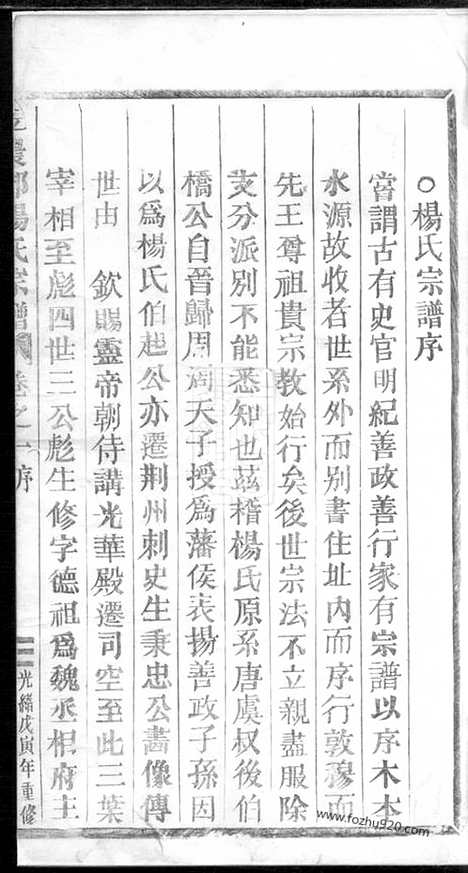 ○楊氏宗譜序
嘗謂古有史官明紀善政善行家有宗譜以序木本
水源故收者世系外而別書住址內而序行敦穆而
先王尊祖貴宗教始行矣後世宗法不立親盡服除
支分派別不能悉知也茲稽楊氏原系唐虞叔後伯
橋公自晉歸周周天子授爲藩侯表揚善政子孫因
以爲楊氏伯起公亦遷荆州刺史生秉忠公畵像傳
世由　欽賜靈帝朝侍講光華殿遷司空至此三葉
宰相至彪四世三公彪生修字德祖爲魏丞相府主
楊氏宗譜 卷之一 序
光緒戊寅年重修
www.fozhu920.com